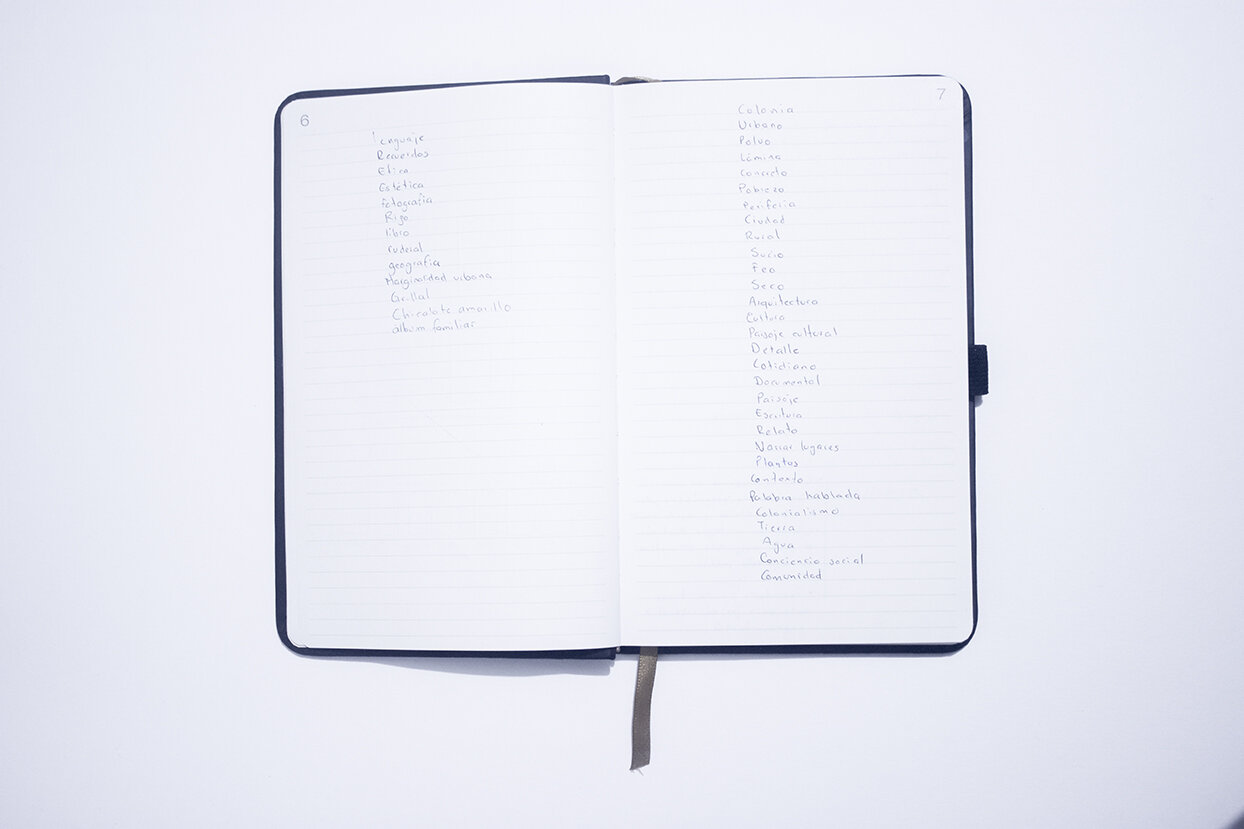 6
lenguaje
Recuerdos
Etica
Estética
fotografía
Rizo
libro
ruderal
geografía
Marginaridad urbana
Grillal
Chicalote amarillo
album familiar
7
Colonia
Urbano
Polvo
Lámina
Concreto
Pobreza
Periferia
Ciudad
Rural
Sucio
Feo
Seco
Arquitectura
Cultura
Paisaje cultural
Detalle
Cotidiano
Documental
Paisaje
Escritura
Relato
Narrar lugares
Plantas
Contexto
Palabra hablada
Colonialismo
Tierra
Agua
Conciencia social
Comunidad